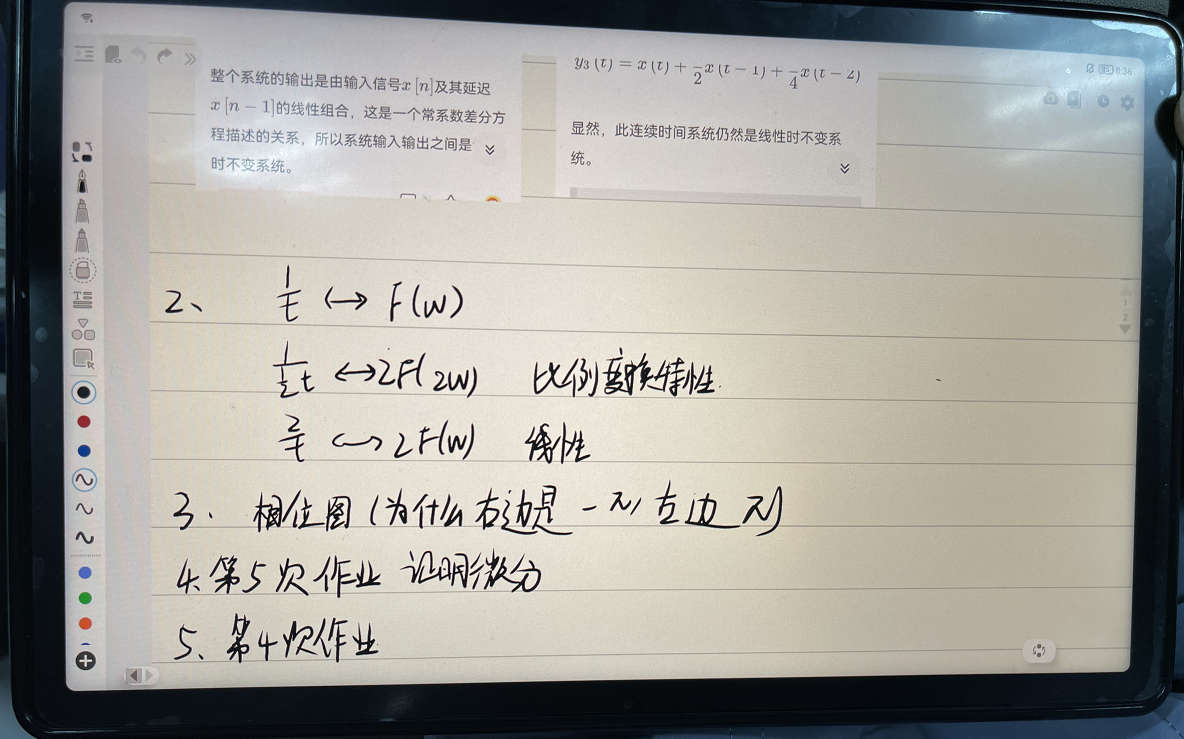 8:36
整个系统的输出是由输入信号x[n]及其延迟
x[n-1]的线性组合，这是一个常系数差分方
程描述的关系，所以系统输入输出之间是
时不变系统。
y₃(t) = x(t) + 1/2 x(t-1) + 1/4 x(t-2)
显然，此连续时间系统仍然是线性时不变系
统。
2、 1/t ↔ F(W)
1/(1/2 t) ↔ 2F(2W) 比例变换特性.
2/t ↔ 2F(W) 线性
3. 相位图（为什么右边是 -π, 左边 π）
4、第5次作业 证明微分
5、第4次作业